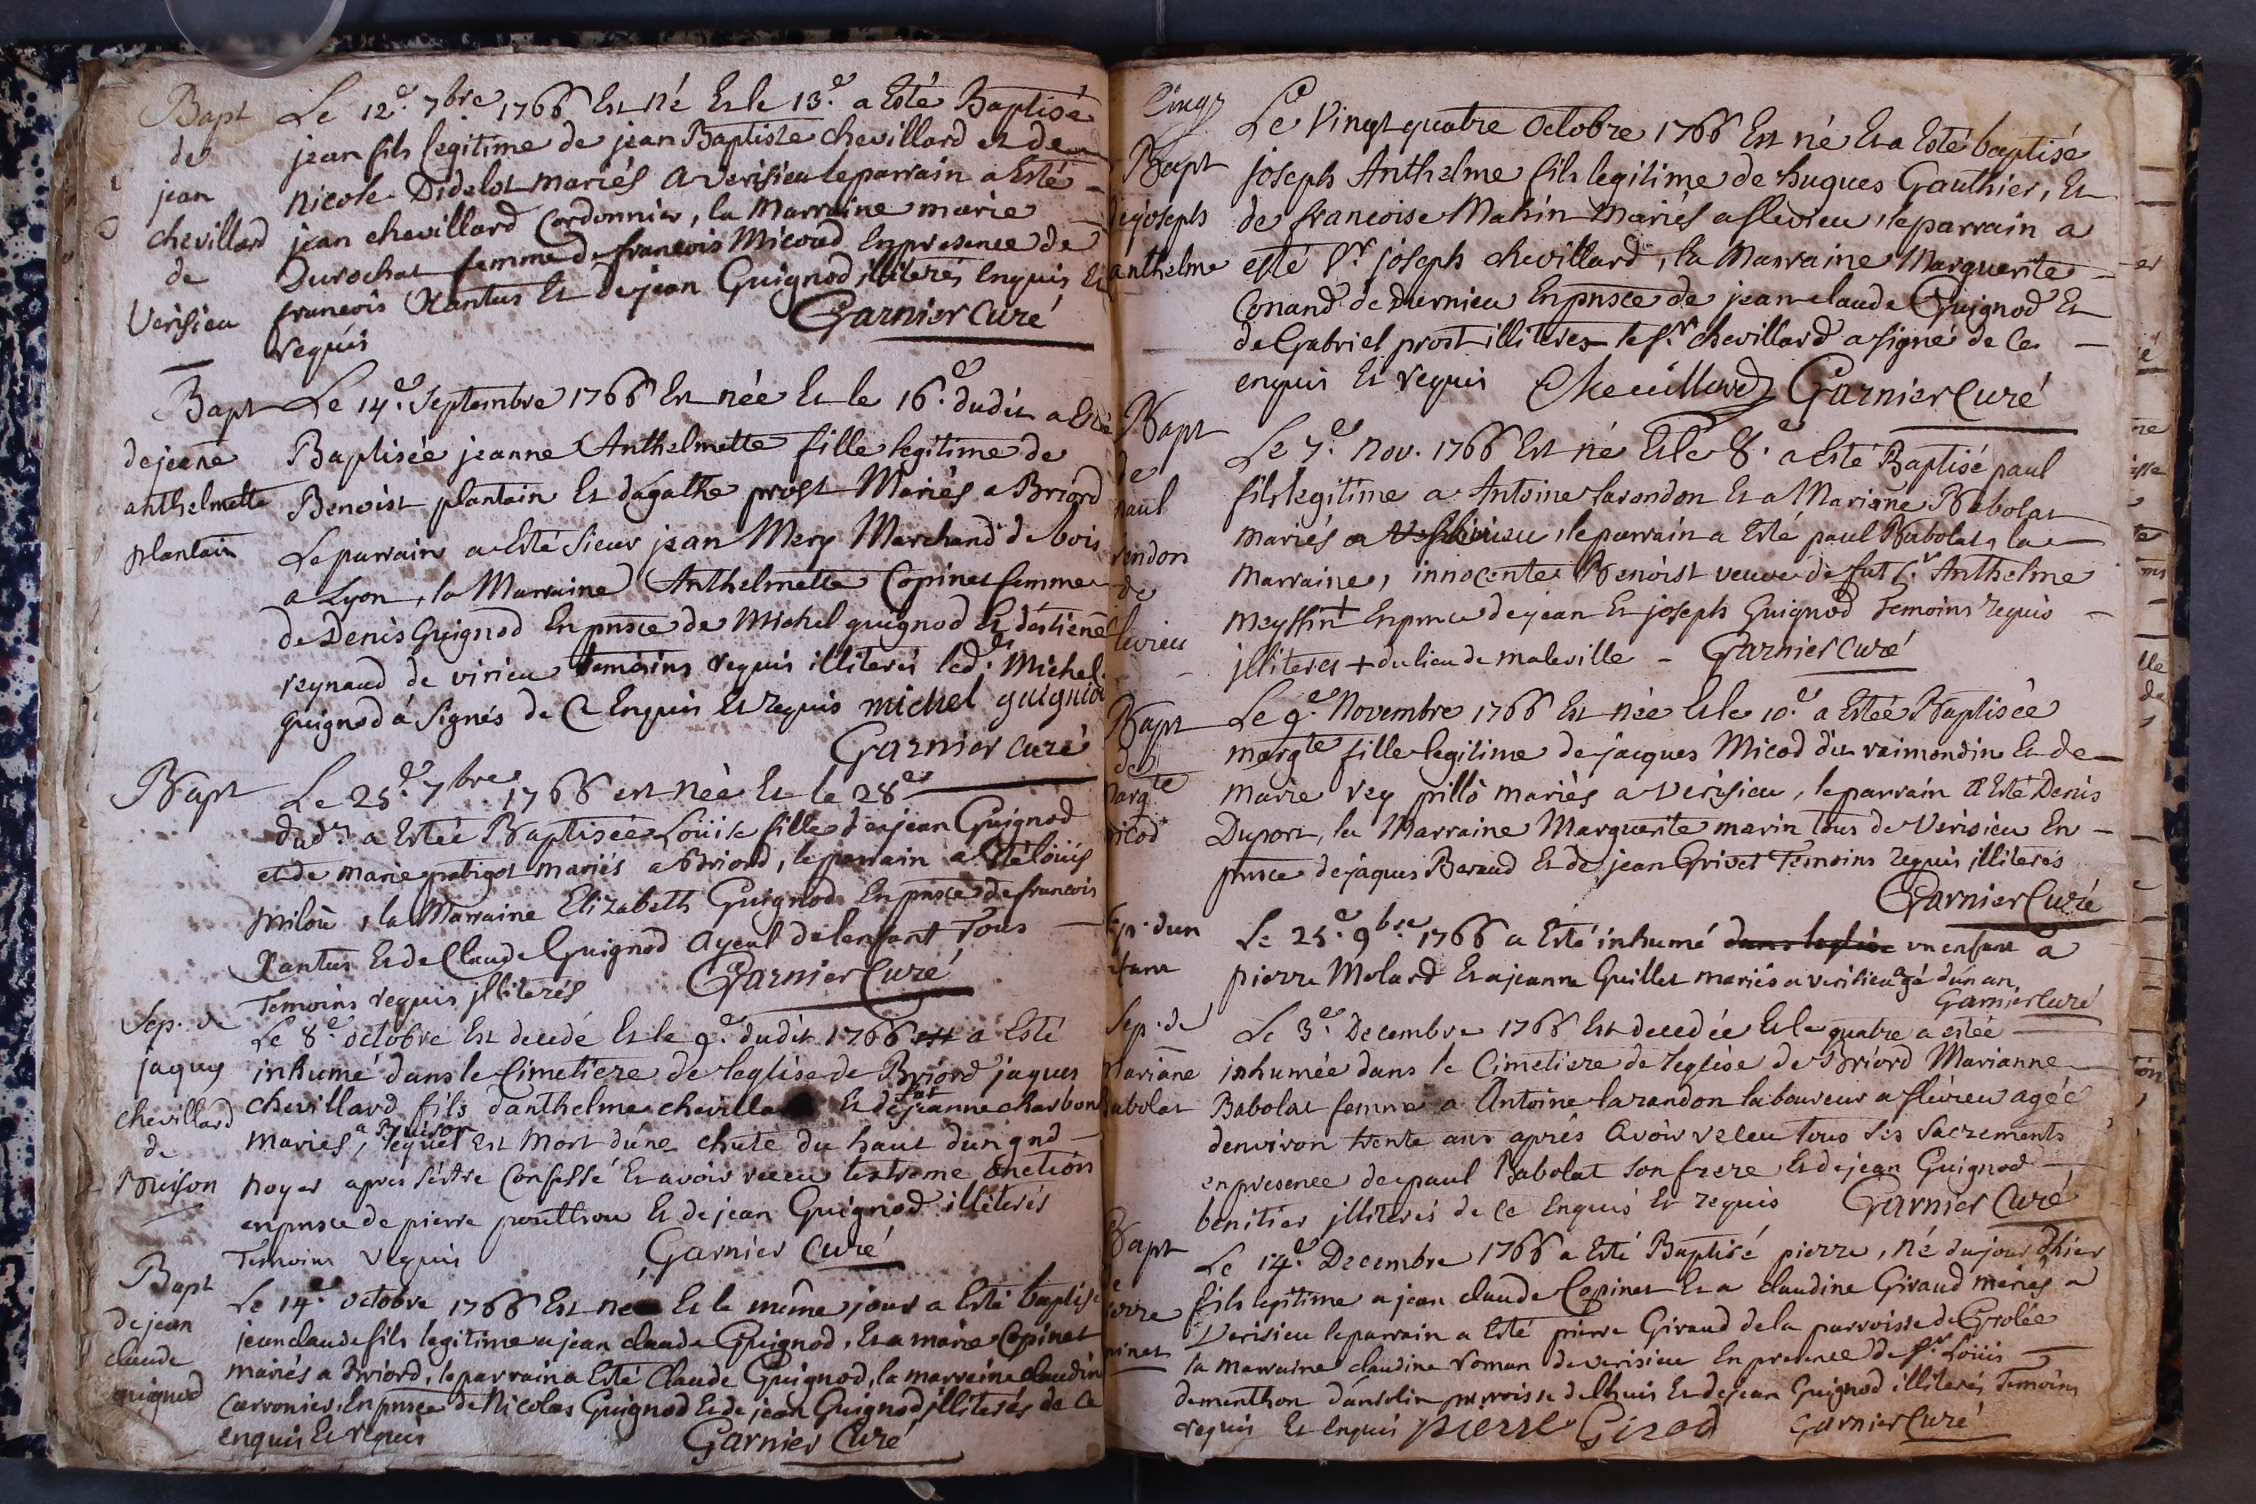 Bapt
de
jean
chevillard
de
Verisieu
Le 12.e 7bre 1766 Est né Et le 13.e a Esté Baptisé
jean fils legitime de jean Baptiste chevillard et de
nicole Didelot mariés a verisieu le parrain a Esté
jean chevillard Cordonnier, la Marraine marie
Durochat femme de francois Micoud En presence de
francois Xantus Et de jean Guignod illiterés Enquis Et
requis
Garnier Curé
Bapt
de jeane
anthelmette
plantain
Le 14.e Septembre 1766 Est née Et le 16.e dudit a Esté
Baptisée jeanne Anthelmette fille legitime de
Benoist plantain Et d'agathe prost Mariés a Briord
Le parrain a Esté Sieur jean Mery Marchand de bois
a Lyon, la Marraine Anthelmette Copinet femme
de Denis Guignod En pnsce de Michel guignod Et d'estiene
reynaud de virieu temoins requis illiterés led.t Michel
guignod á Signés de Ce Enquis Et requis michel guignod
Garnier curé
Bapt
Le 25.e 7bre 1766 est née Et le 28e
dud.t a Estée Baptisée Loüise fille de jean Guignod
et de marie prabigot mariés a Briord, le parrain a Esté loüis
milou, la Marraine Elizabeth Guignod En pnsce de francois
Xantus Et de Claude Guignod ayeul de lenfant Tous
Temoins requis jlliterés
Garnier Curé
Sep. de
jaques
chevillard
de
Buison
Le 8.e octobre Est decedé Et le 9.e dudit 1766 a Esté
inhumé dans le Cimetiere de leglise de Briord jaques
chevillard fils d'anthelme chevillard Et de jeanne charbon
mariés a Buison, lequel Est Mort d'une chute du haut d'un gnd
noyer apres s'estre Confessé Et avoir receu lextreme Onction
en pnsce de pierre ponthou Et de jean Guignod illiterés
Temoins requis
Garnier Curé
Bapt
de jean
claude
guignod
Le 14.e octobre 1766 Est né Et le même jour a Esté baptisé
jean claude fils legitime a jean claude Guignod, Et a marie Copinet
mariés a Briord, le parrain a Esté Claude Guignod, la marraine claudine
Carronier, En pnsce de Nicolas Guignod Et de jean Guignod jlliterés de Ce
enquis Et requis
Garnier Curé
Cinq
Bapt
de joseph
anthelme
Le Vingt quatre Octobre 1766 Est né Et a Esté baptisé
joseph Anthelme fils legitime de hugues Gauthier, Et
de francoise Mahin Mariés a flevieu, le parrain a
esté Sr. joseph chevillard, la Marraine Marguerite
Conand de Durnieu En pnsce de jean claude Guignod Et
de Gabriel prost illiteres le Sr. chevillard a signé de Ce
enquis Et requis Chevillard Garnier Curé
Bapt
de
paul
rendon
de
levieu
Le 7.e Nov. 1766 Est né Et le 8.e a Esté Baptisé paul
fils legitime a Antoine larondon Et a Mariane Babolat
mariés a flevieu, le parrain a Esté paul Babolat, la
Marraine, innocente Benoist veuve de fut Sr. Anthelme
Meyssin + En pnce de jean Et joseph Guignod Temoins requis
jlliterés + du lieu de maleville - Garnier Curé
Bapt
de
Margte
Micod
Le 9.e Novembre 1766 Est née Et le 10.e a Estée Baptisée
margte fille legitime de jacques Micod dit raimondin Et de
Marie rey pillo mariés a verisieu, le parrain a Esté Denis
Duport, la Marraine Marguerite marin tous de Verisieu En
pnsce de jaques Beraud Et de jean Grivet Temoins requis illiterés
Garnier Curé
Sep. dun
enfant
Le 25.e 9bre 1766 a Esté inhumé dans leglise un enfant a
pierre Molard Et a jeanne Guillet mariés a verisieu agé d'un an
Garnier Curé
Sep. de
Mariane
Babolat
Le 3.e Decembre 1766 Est decedée Et le quatre a estée
inhumée dans le Cimetiere de leglise de Briord Marianne
Babolat femme a Antoine larandon laboureur a flevieu agée
denviron trente ans aprés avoir receu tous ses Sacrements
en presence de paul Babolat son frere, Et de jean Guignod
benitier jlliterés de Ce Enquis Et requis Garnier Curé
Bapt
de
pierre
Copinet
Le 14.e Decembre 1766 a Esté Baptisé pierre, né du jour d'hier
fils legitime a jean claude Copinet Et a claudine Giraud mariés a
Verisieu le parrain a Esté pierre Giraud de la parroisse de Grolée
la marraine claudine roman de verisieu En presence de Sr. Loüis
dementhon d'ansolin parroisse de lhuis Et de jean Guignod illiterés Temoins
requis Et Enquis pierre Girod Garnier Curé